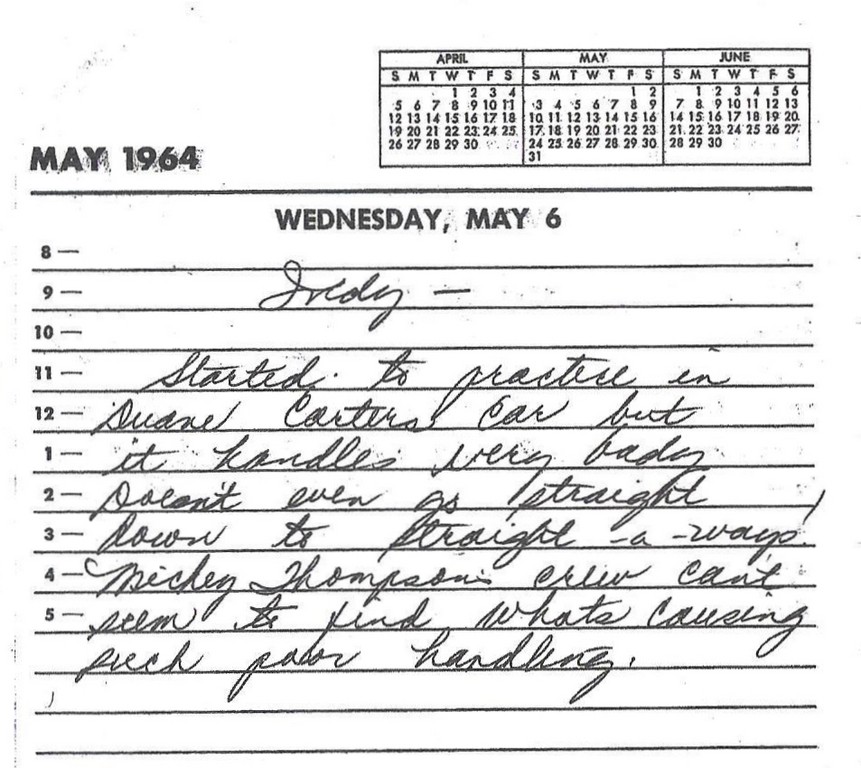 APRIL MAY JUNE
S M T W T F S S M T W T F S S M T W T F S
1 2 3 4 1 2 1 2 3 4 5 6
5 6 7 8 9 10 11 3 4 5 6 7 8 9 7 8 9 10 11 12 13
12 13 14 15 16 17 18 10 11 12 13 14 15 16 14 15 16 17 18 19 20
19 20 21 22 23 24 25 17 18 19 20 21 22 23 21 22 23 24 25 26 27
26 27 28 29 30 24 25 26 27 28 29 30 28 29 30
31
MAY 1964
WEDNESDAY, MAY 6
8 —
9 — Indy —
10 —
11 — Started to practice in
12 — Duane Carters car but
1 — it handles very bady
2 — Doesn't even go straight
3 — down to straight-a-ways.
4 — Mickey Thompsons crew cant
5 — seem to find whats causing
such poor handling.